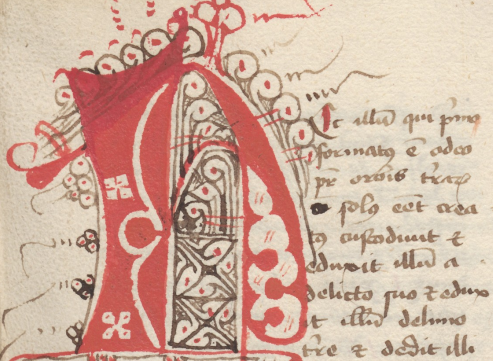 Ec illū qui p̄mꝰ
formatꝰ ē adeo
pr̄ orbis t̄raꝝ
solꝰ eēt crea
tꝰ custodiuit ⁊
eduxit illū a
delicto suo ⁊ edux
it illū delimo
t̄re ⁊ dedit illi